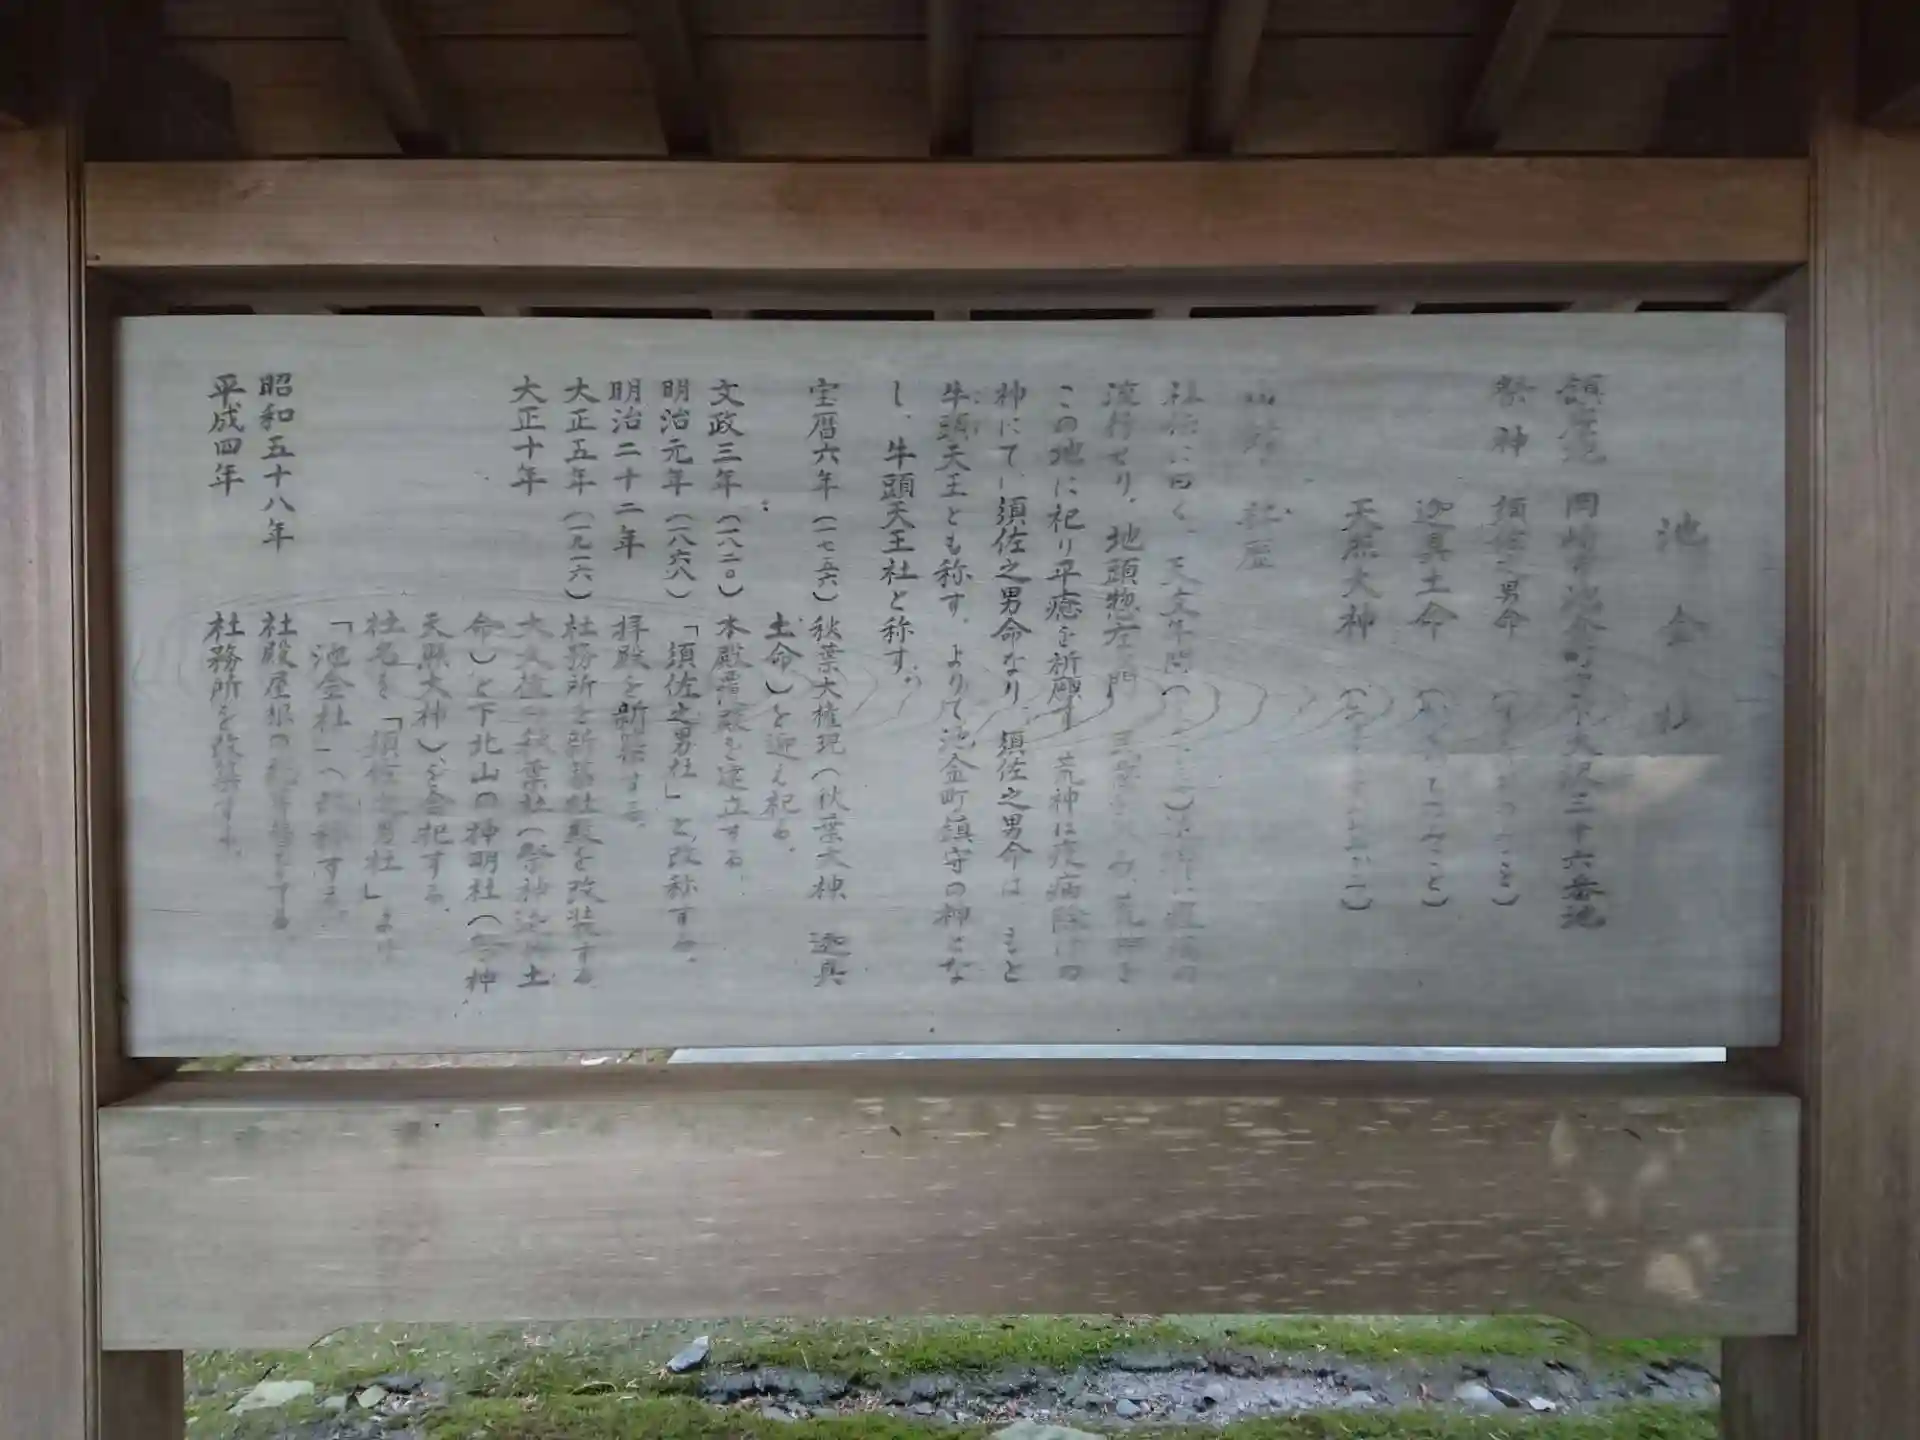 池金社
鎮座地 岡崎市池金町字大沢三十六番地
祭神 須佐之男命
迦具土命
天照大神
社歴
社伝に曰く、天文年間
流行せり。地頭惣左ヱ門 荒神を
この地に祀り平癒を祈願す 荒神は疫病除けの
神にて、須佐之男命なり 須佐之男命は もと
牛頭天王とも称す。よりて池金町鎮守の神とな
し、牛頭天王社と称す。
宝暦六年(一七五六)秋葉大権現(秋葉大神 迦具
土命)を迎え祀る。
文政三年(一八二〇)本殿覆殿を建立する
明治元年(一八六八)「須佐之男社」と改称する。
明治二十二年 拝殿を新築する。
大正五年(一九一六)社務所を新築社殿を改装する
大正十年 秋葉社(祭神迦具土
命)と下北山の神明社(祭神
天照大神)を合祀する。
社名を「須佐之男社」より
「池金社」へ改称する。
昭和五十八年 社殿屋根の
平成四年 社務所を改築する。